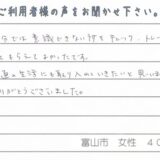 ご利用者様の声をお聞かせ下さい。
では意識できない所をチェック、トレー
てもらえてよかったです。
の生活にも取り入れていきたいと思いま
りがとうございました。
富山市 女性 40